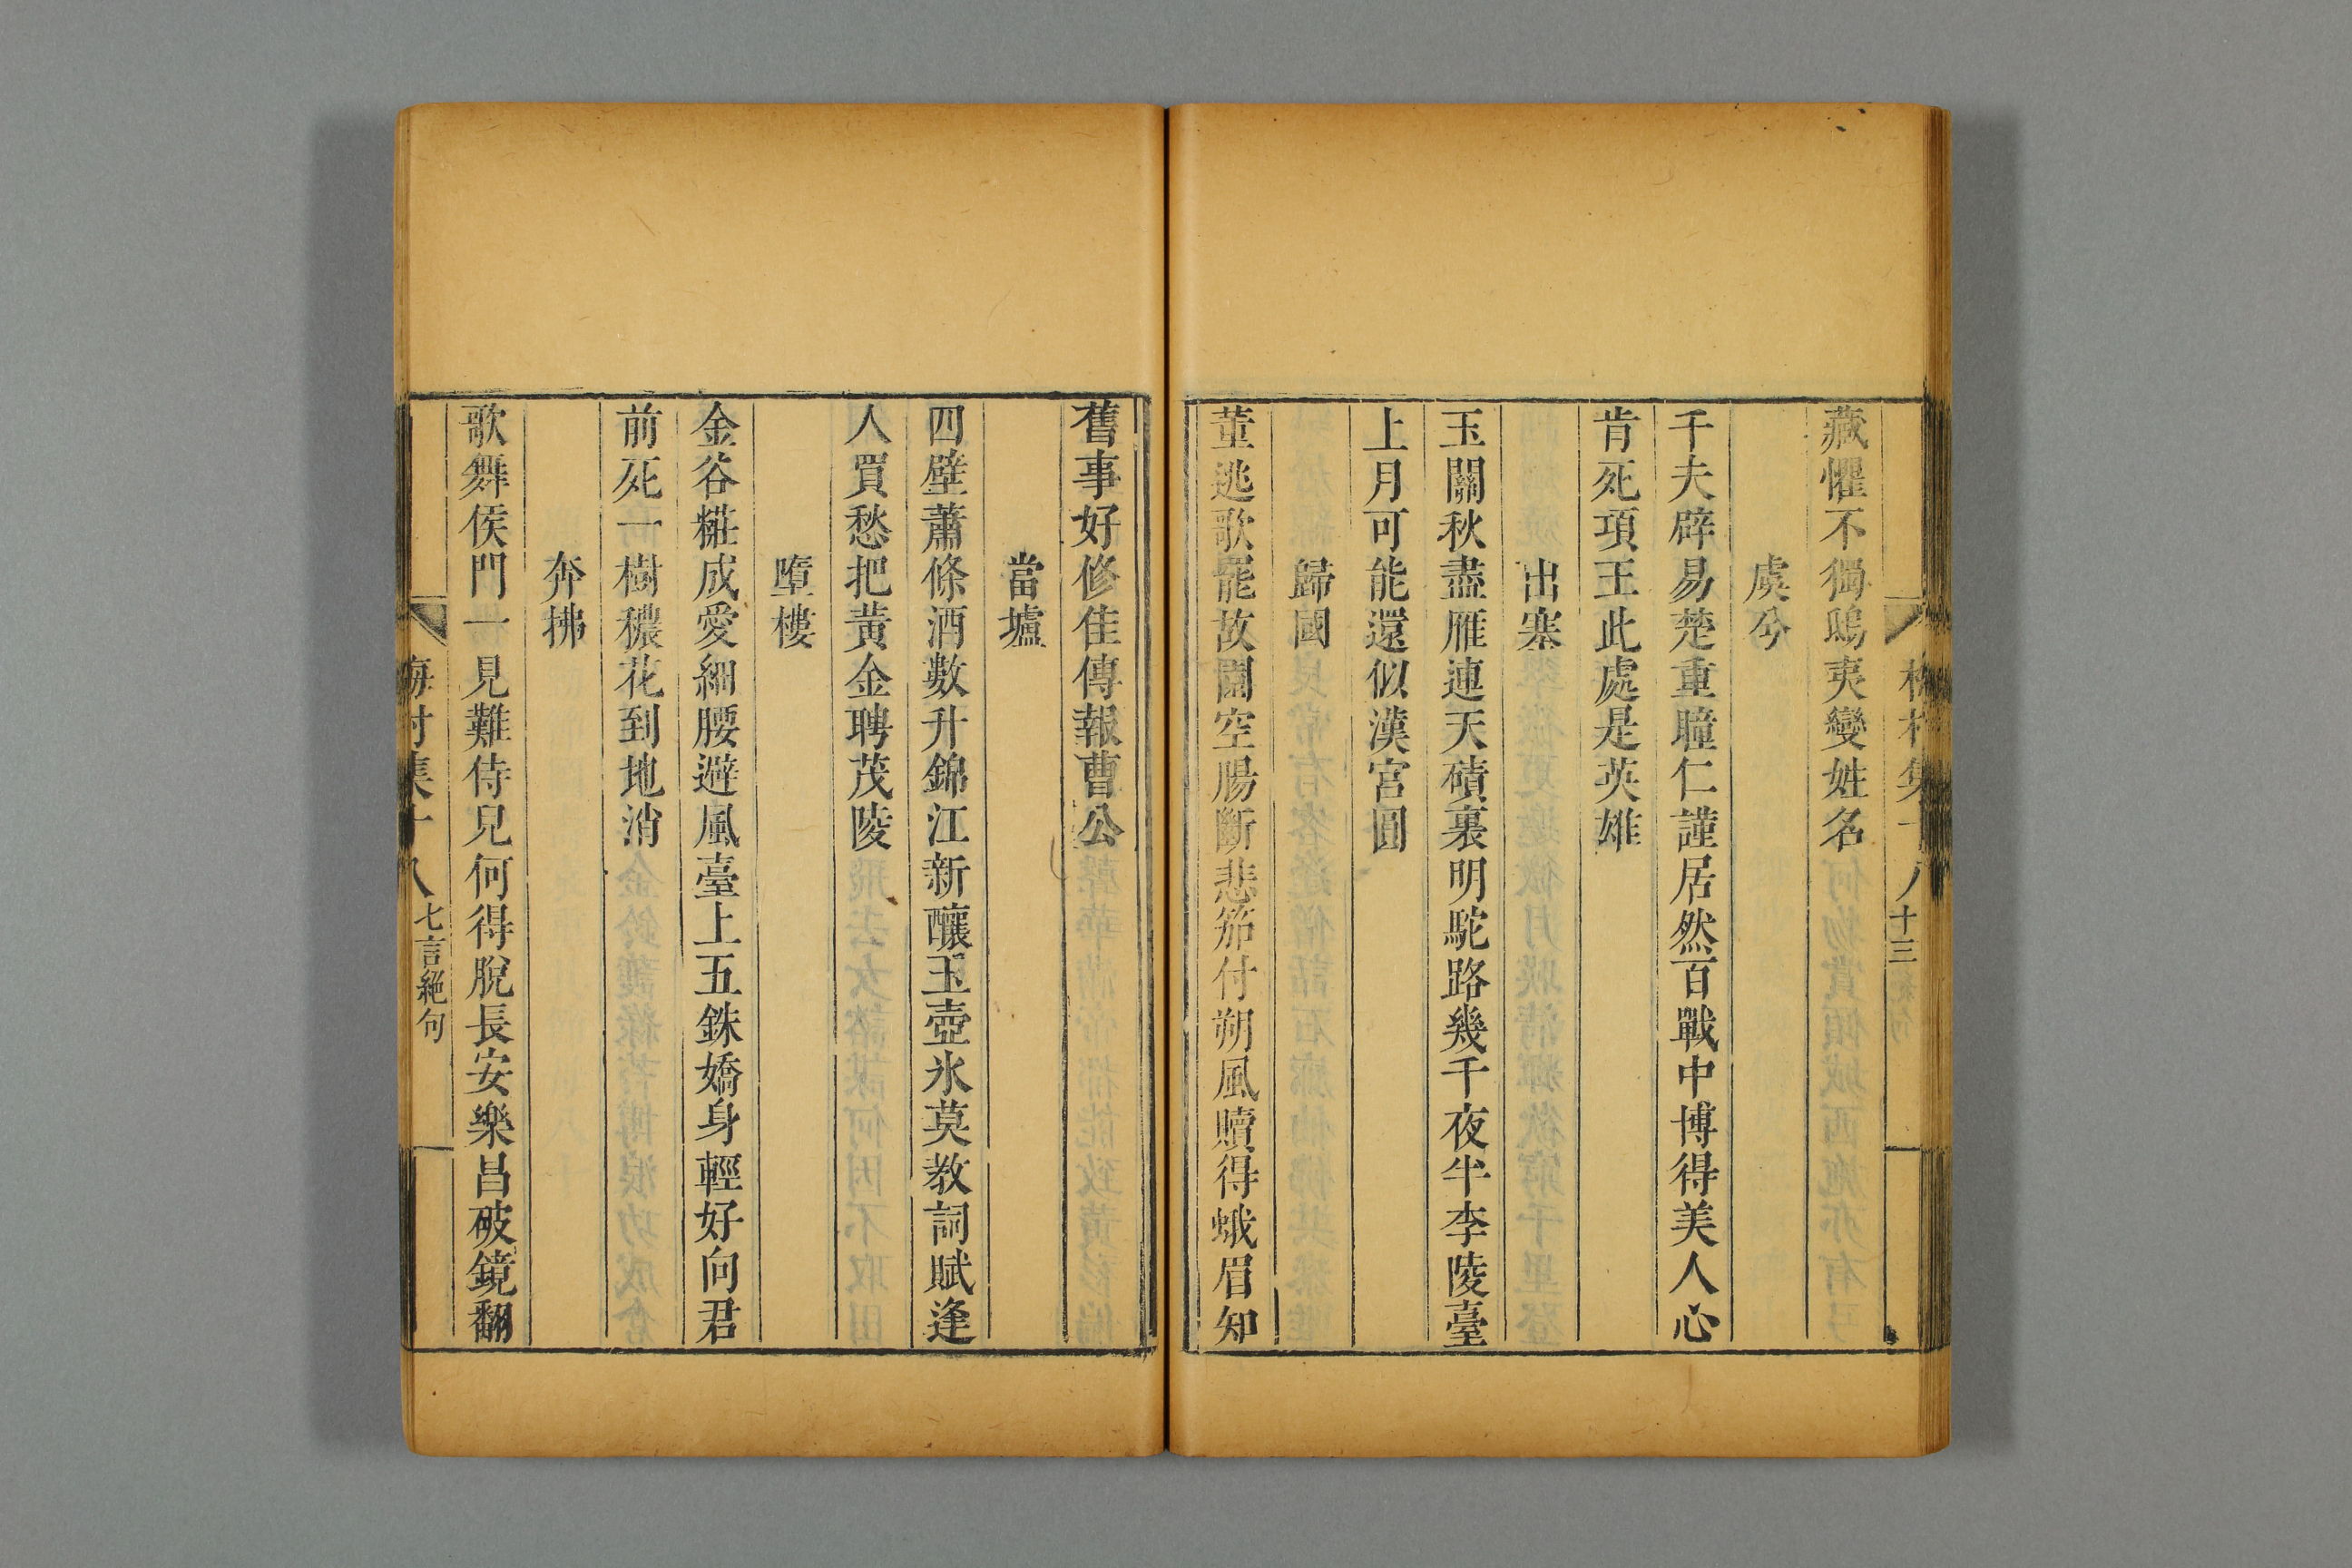 藏懼不獨鴟夷變姓名
虞兮
千夫辟易楚重瞳仁謹居然百戰中博得美人心
肯死項王此處是英雄
出塞
玉關秋盡雁連天磧裏明駝路幾千夜半李陵臺
上月可能還似漢宮圓
歸國
董逃歌罷故園空腸斷悲笳付朔風贖得蛾眉知
舊事好修佳傳報曹公
當壚
四壁蕭條酒數升錦江新釀玉壺氷莫教詞賦逢
人買愁把黃金聘茂陵
墮樓
金谷糚成愛細腰避風臺上五銖嬌身輕好向君
前死一樹穠花到地消
奔拂
歌舞侯門一見難侍兒何得脫長安樂昌破鏡翻
梅村集十八
七言絕句
十三